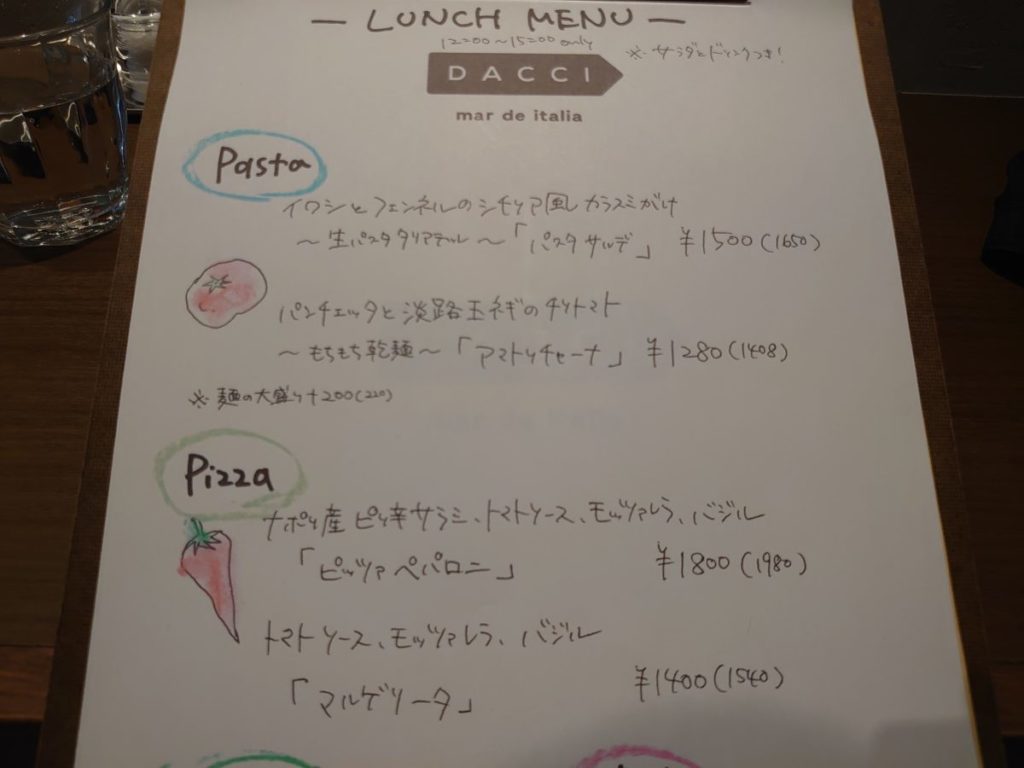 — LUNCH MENU —
12:00〜15:00 only
※サラダとドリンクつき!
DACCI
mar de italia
Pasta
イワシとフェンネルのシチリア風カラスミがけ
〜生パスタタリアテッレ〜「パスタサルデ」 ¥1500(1650)
パンチェッタと淡路玉ネギのチリトマト
〜もちもち乾麺〜「アマトリチャーナ」 ¥1280(1408)
※麺の大盛り+200(220)
Pizza
ナポリ産ピリ辛サラミ、トマトソース、モッツァレラ、バジル
「ピッツァペパロニ」 ¥1800(1980)
トマトソース、モッツァレラ、バジル
「マルゲリータ」 ¥1400(1540)